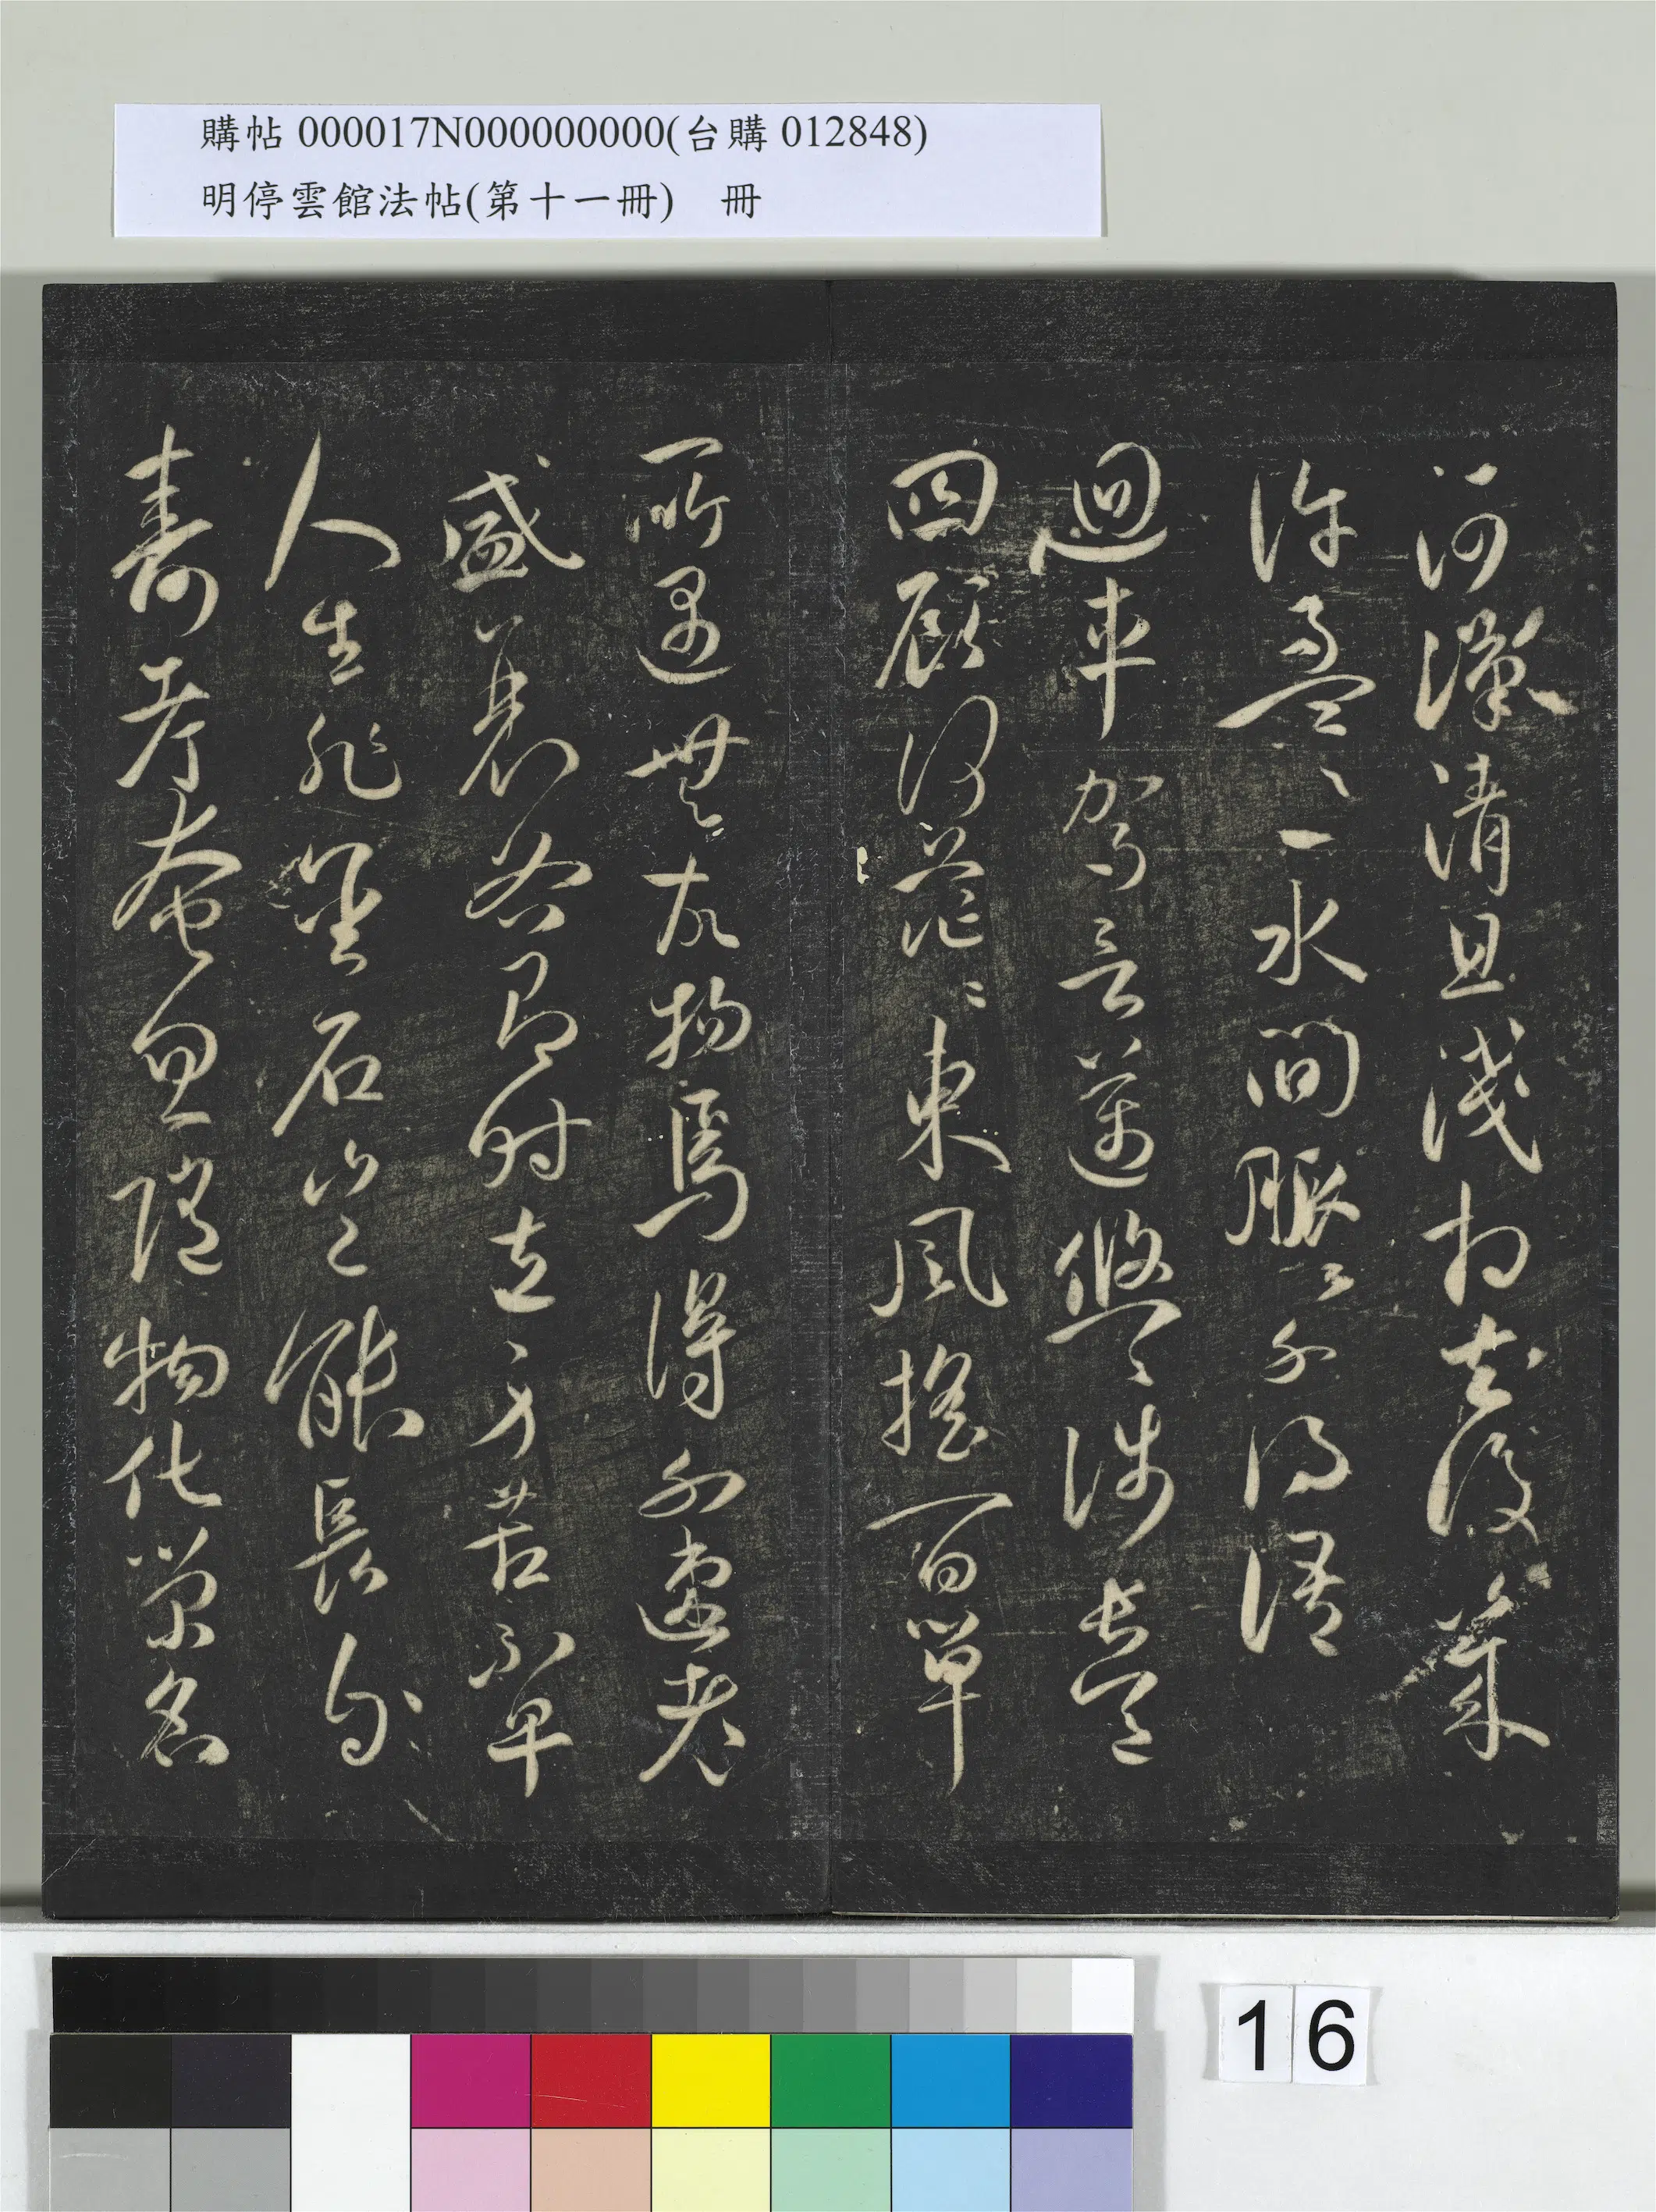 購帖 000017N000000000(台購 012848)
明停雲館法帖(第十一冊) 冊
河漢清且淺相去復幾
許盈〻一水間脈〻不得語
迴車駕言邁悠〻涉長道
四顧何茫〻東風搖百草
所遇無故物焉得不速老
盛衰各有時立身苦不早
人生非堅石豈能長
壽考奄忽隨物化榮名
16